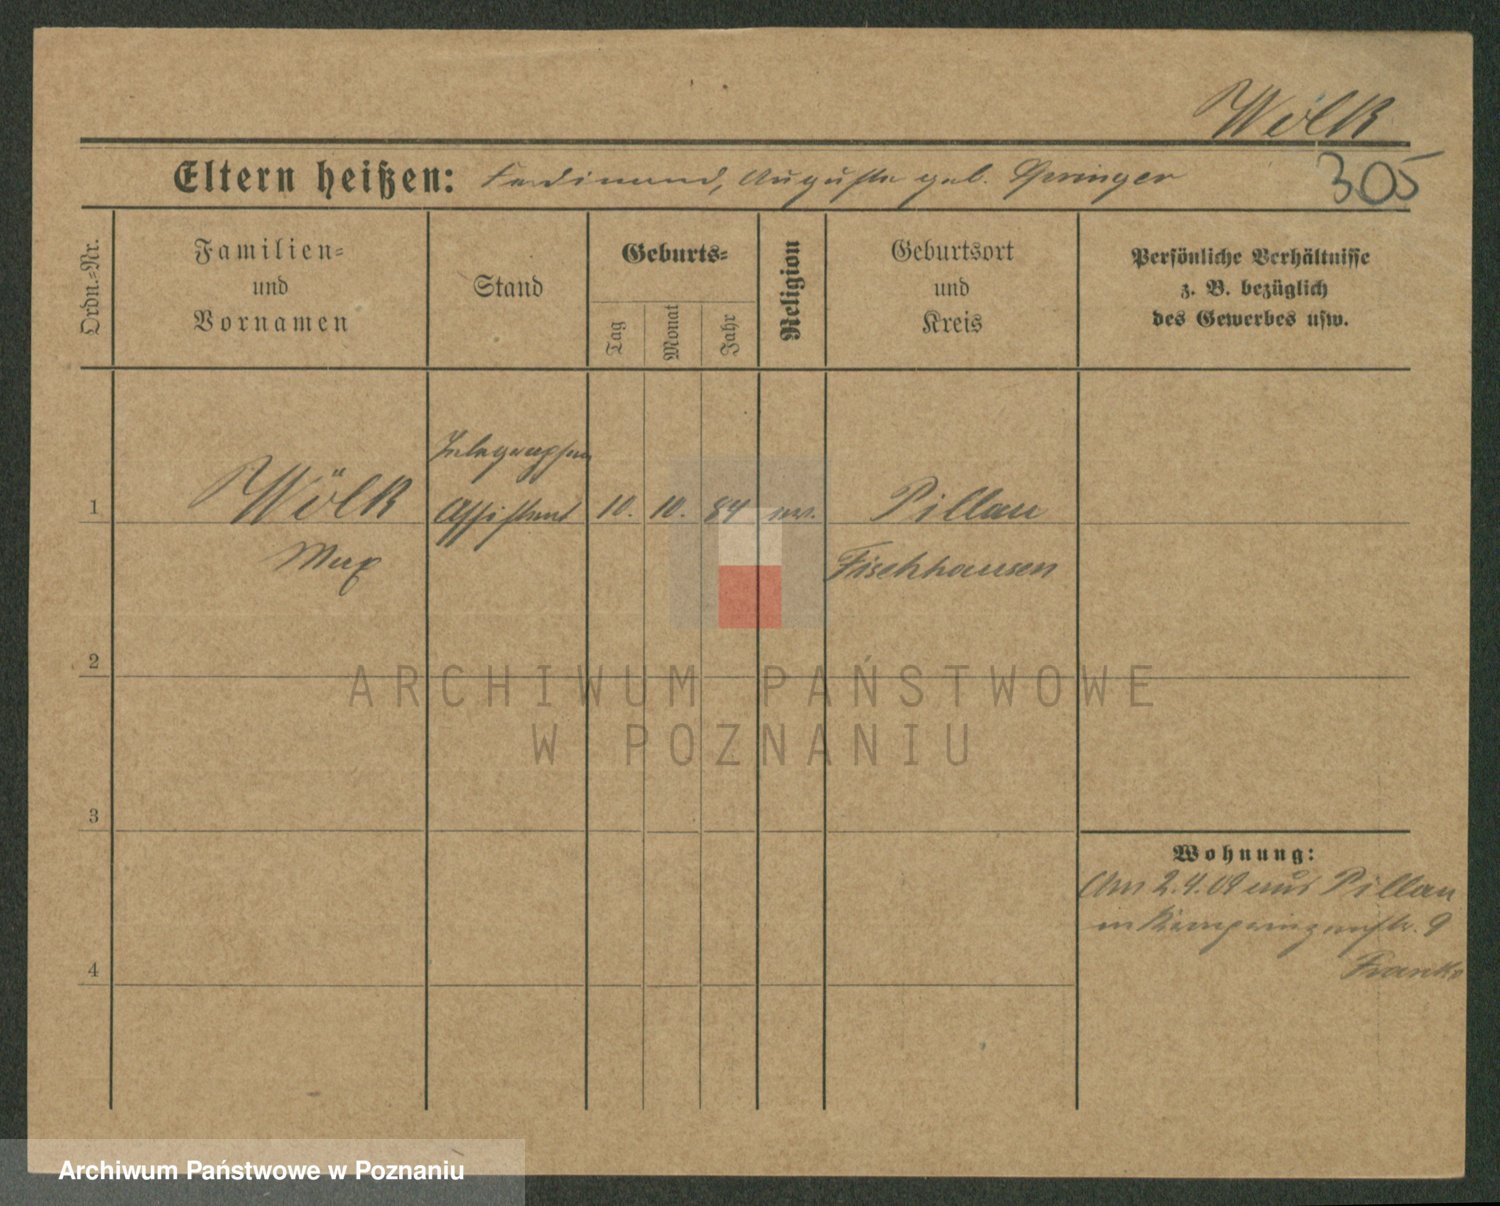 Wölk
305
Eltern heißen: Ferdinand, Auguste geb. Springer
Ordn.-Nr.
Familien-
und
Vornamen
Stand
Geburts-
Tag
Monat
Jahr
Religion
Geburtsort
und
Kreis
Persönliche Verhältnisse
z. B. bezüglich
des Gewerbes usw.
Telegraphen
1 Wölk Assistent 10. 10. 84 ev. Pillau
Max Fischhausen
2
ARCHIWUM PAŃSTWOWE
W POZNANIU
3
Wohnung:
Am 2.4.09 aus Pillau
in 9
4
Franke
Archiwum Państwowe w Poznaniu